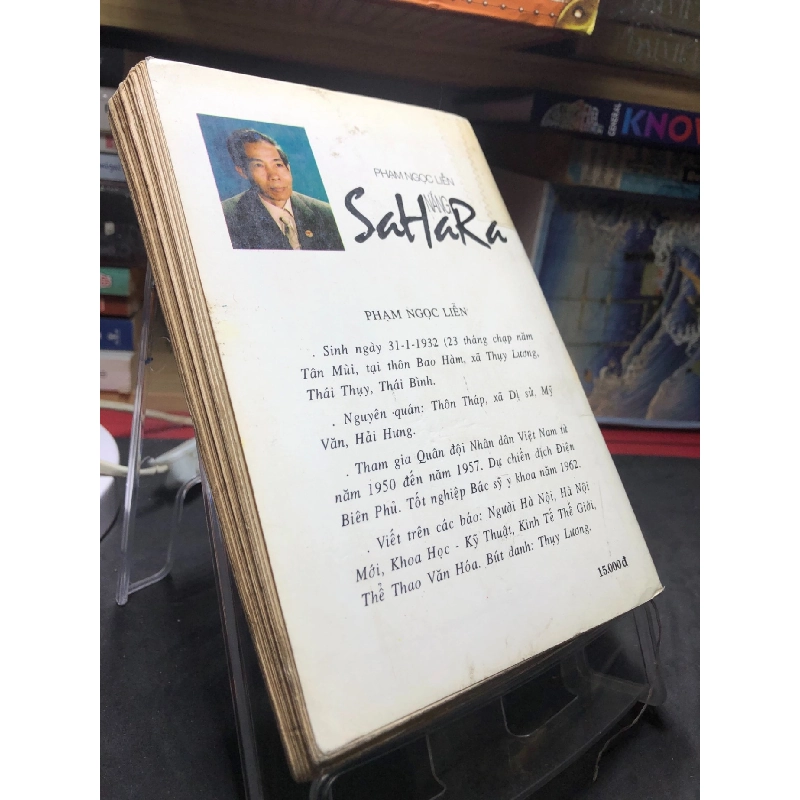 PHẠM NGỌC LIỄN
NẮNG
SaHaRa
PHẠM NGỌC LIỄN
. Sinh ngày 31-1-1932 (23 tháng chạp năm
Tân Mùi, tại thôn Bao Hàm, xã Thụy Lương,
Thái Thụy, Thái Bình.
. Nguyên quán: Thôn Tháp, xã Dị sử, Mỹ
Văn, Hải Hưng.
. Tham gia Quân đội Nhân dân Việt Nam từ
năm 1950 đến năm 1957. Dự chiến dịch Điện
Biên Phủ. Tốt nghiệp Bác sỹ y khoa năm 1962.
. Viết trên các báo: Người Hà Nội, Hà Nội
Mới, Khoa Học - Kỹ Thuật, Kinh Tế Thế Giới,
Thể Thao Văn Hóa. Bút danh: Thụy Lương.
15.000đ
GENERAL
KNOW